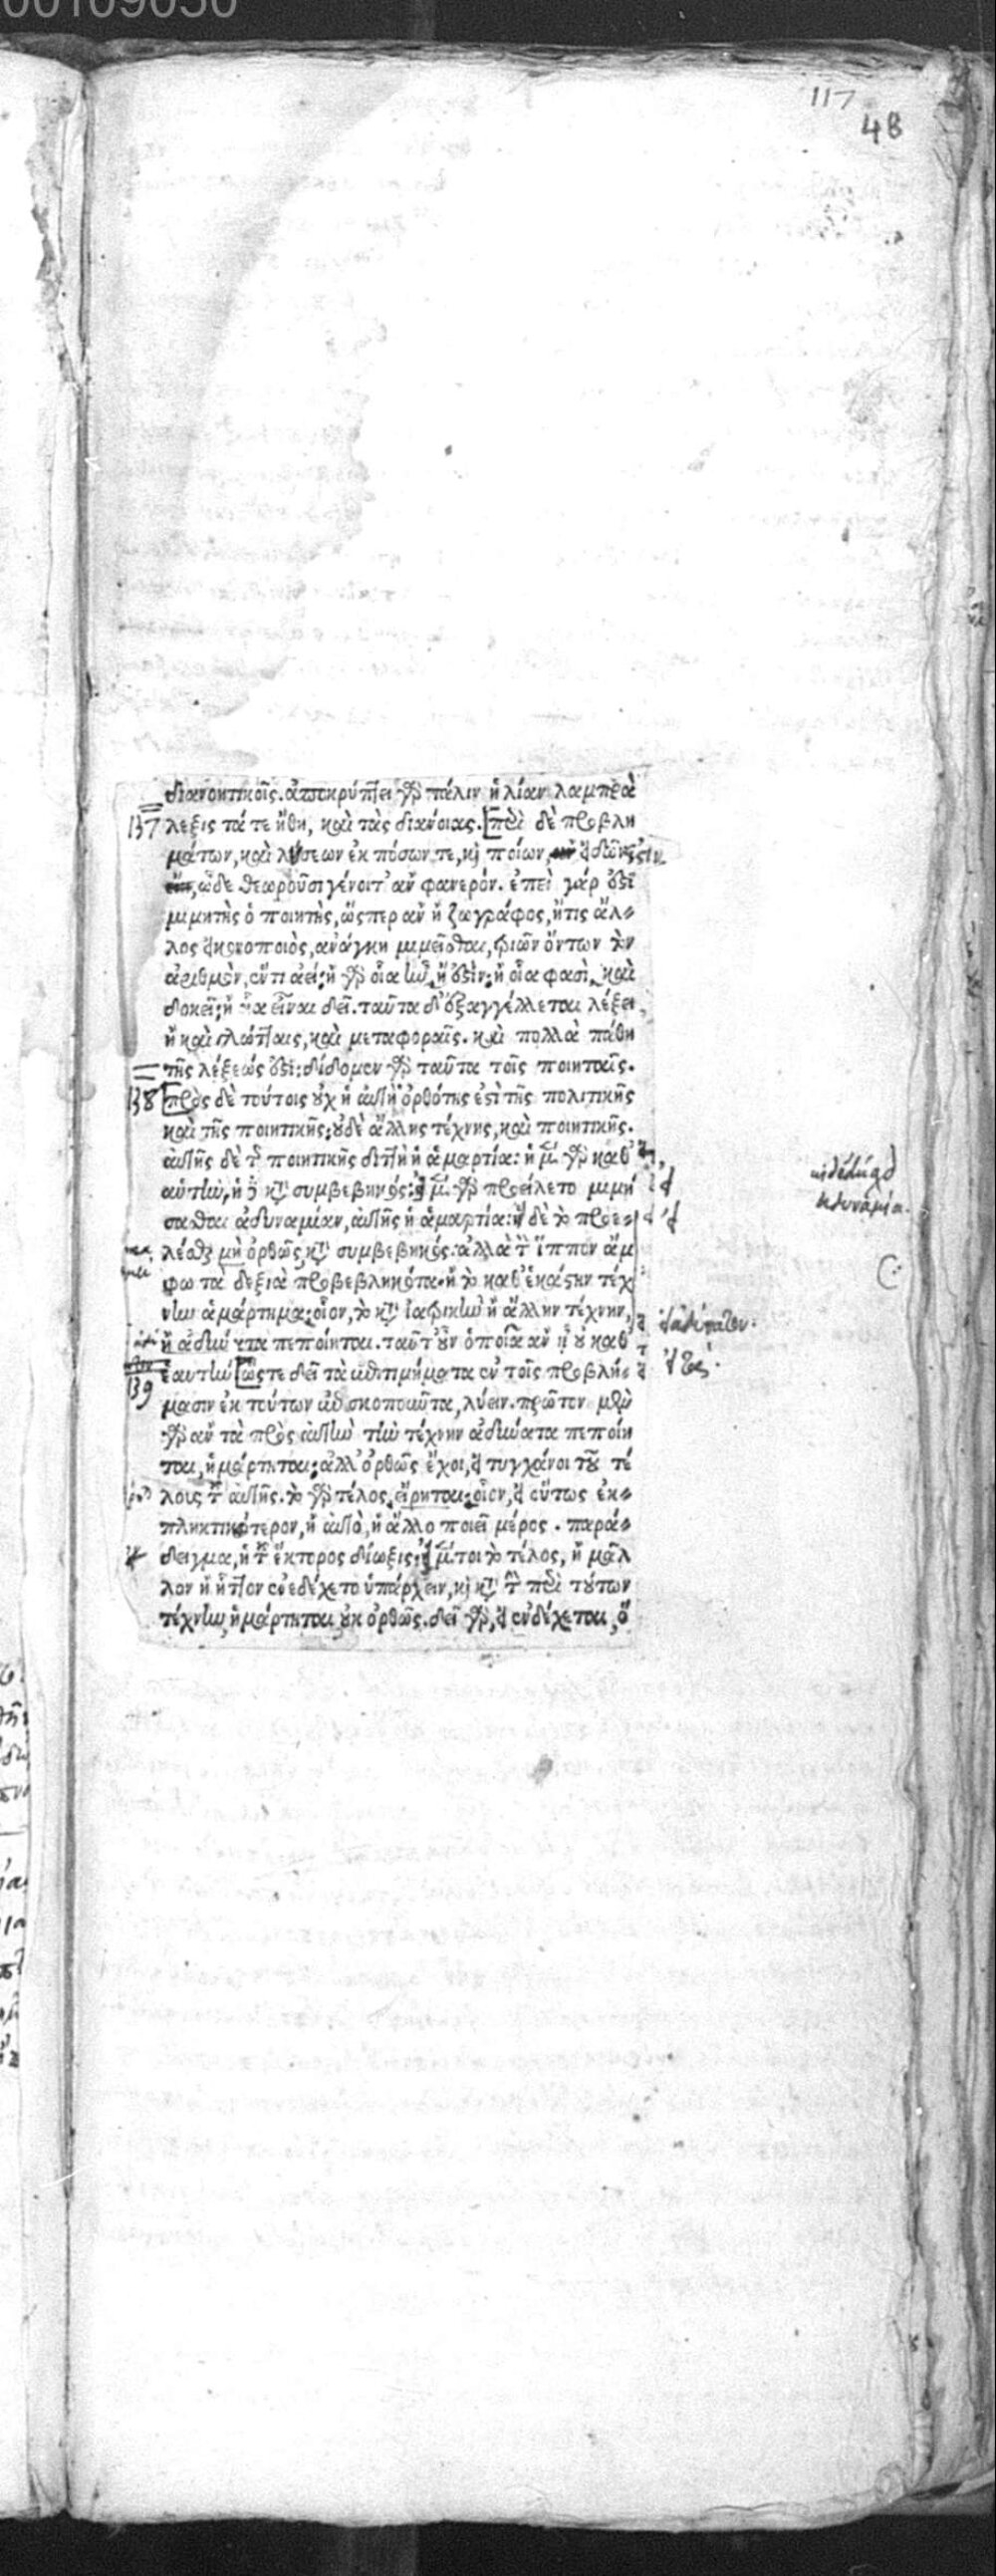 00109030
117
48
διανοητικοῖς. ἀποκρύπτει γὰρ πάλιν ἡ λίαν λαμπρὰ
137 λέξις τά τε ἤθη, καὶ τὰς διανοίας. [περὶ δὲ προβλη
μάτων, καὶ λύσεων ἐκ πόσων τε, καὶ ποίων,
ὧδε θεωροῦσι γένοιτ' αν φανερόν. ἐπεὶ γάρ ἐστι
μιμητὴς ὁ ποιητὴς, ὥσπερ αν ἢ ζωγράφος, ἤ τις ἄλ-
λος εἰκονοποιὸς, ανάγκη μιμεῖσθαι, τριῶν ὄντων τὸν
ἀριθμὸν, ἕν τι ἀεί: ἢ γὰρ οἷα ἦν, ἢ ἐστίν: ἢ οἷα φασὶ, καὶ
δοκεῖ: ἢ οἷα εἶναι δεῖ. ταῦτα δ' ἐξαγγέλλεται λέξει,
ἢ καὶ γλώτταις, καὶ μεταφοραῖς. καὶ πολλὰ πάθη
τῆς λέξεώς ἐστι: δίδομεν γὰρ ταῦτα τοῖς ποιηταῖς.
138 [πρὸς δὲ τούτοις οὐχ ἡ αὐτὴ ὀρθότης ἐστὶ τῆς πολιτικῆς
καὶ τῆς ποιητικῆς: οὐδὲ ἄλλης τέχνης, καὶ ποιητικῆς.
αὐτῆς δὲ τῆς ποιητικῆς διττὴ ἡ ἁμαρτία: ἡ μὲν γὰρ καθ'
αὑτὴν, ἡ δὲ κατὰ συμβεβηκός: εἰ μὲν γὰρ προείλετο μιμή
σασθαι ἀδυναμίαν, αὐτῆς ἡ ἁμαρτία: εἰ δὲ τὸ προε-
λέσθαι μὴ ὀρθῶς, κατὰ συμβεβηκός. ἀλλὰ τὸν ἵππον ἄμ
φω τὰ δεξιὰ προβεβληκότα. ἢ τὸ καθ' ἑκάστην τέχ
νην ἁμάρτημα: οἷον, τὸ κατ' ἰατρικὴν ἢ ἄλλην τέχνην,
ἢ ἀδύνατα πεποίηται. ταῦτ' οὖν ὁποῖα αν ᾖ οὐ καθ'
ἑαυτὴν [ὥστε δεῖ τὰ ἐπιτιμήματα ἐν τοῖς προβλή-
139 μασιν ἐκ τούτων ἐπισκοποῦντα, λύειν. πρῶτον μὲν
γὰρ αν τὰ πρὸς αὐτὴν τὴν τέχνην ἀδύνατα πεποίη
ται, ἡμάρτηται: ἀλλ' ὀρθῶς ἔχοι, εἰ τυγχάνοι τοῦ τέ
λους τοῦ αὐτῆς. τὸ γὰρ τέλος εἴρηται: οἷον, εἰ οὕτως ἐκ-
πληκτικώτερον, ἢ αὐτὸ, ἢ ἄλλο ποιεῖ μέρος. παρά-
δειγμα, ἡ τοῦ ἕκτορος δίωξις: εἰ μέντοι τὸ τέλος, ἢ μᾶλ
λον ἢ ἧττον ἐνεδέχετο ὑπάρχειν, καὶ κατὰ τὴν περὶ τούτων
τέχνην, ἡμάρτηται οὐκ ὀρθῶς. δεῖ γὰρ, εἰ ἐνδέχεται, ὅ